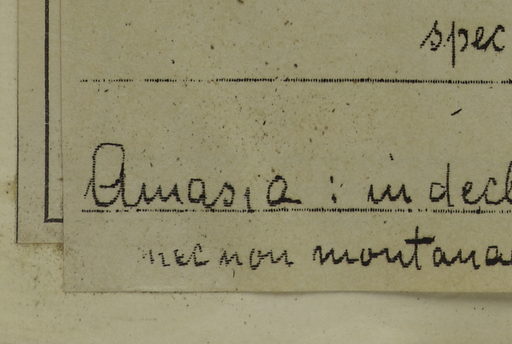 spec
Amasia : in decl
nec non montana